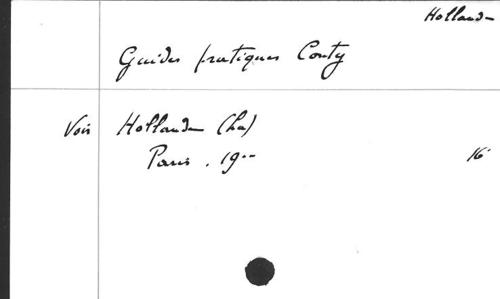 Hollande
Guides pratiques Conty
Voir Hollande (La)
Paris. 19.. 16°